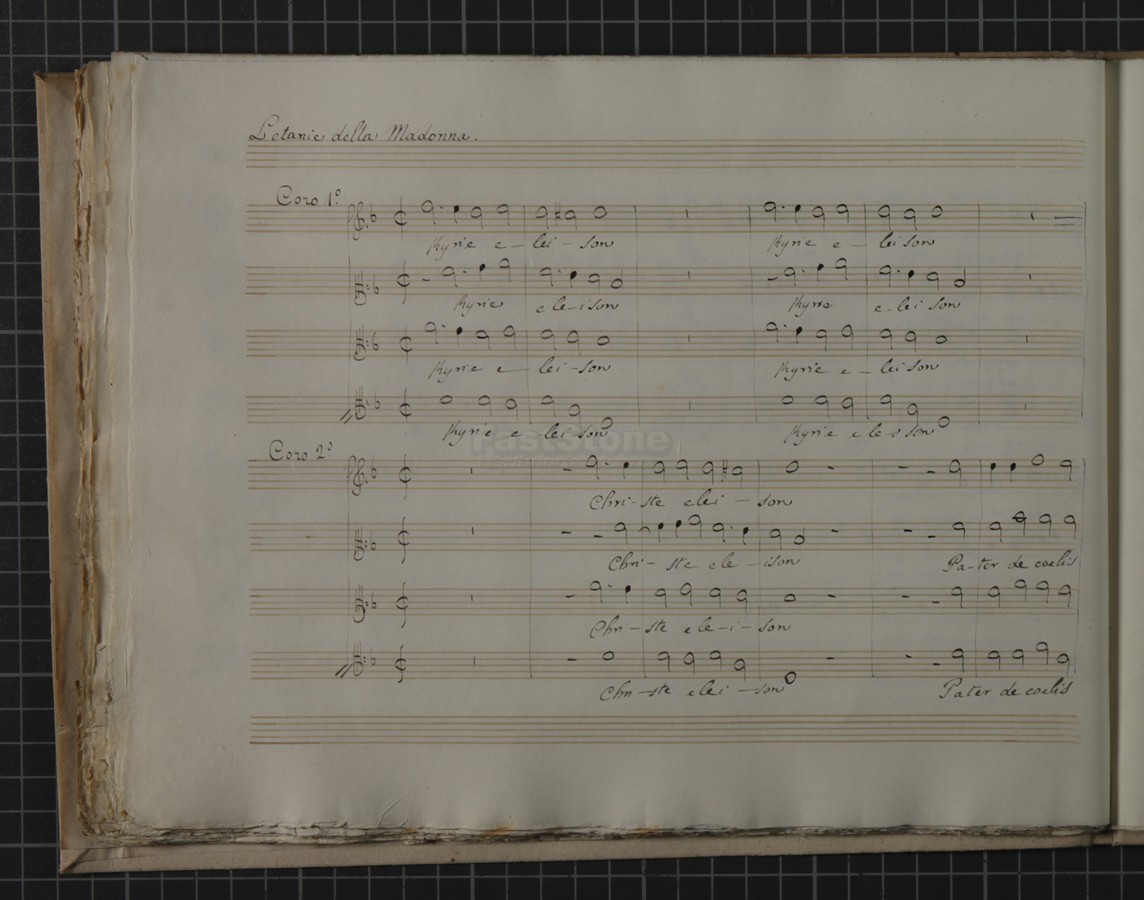 Letanie della Madonna.
Coro 1º
Kyrie e - lei - son Kyrie e - leison
Kyrie e le-ison Kyrie e-leison
Kyrie e - lei-son Kyrie e - leison
Kyrie e - leison Kyrie eleison
Coro 2º
Chri-ste elei - son
Chri-ste ele-ison Pa-ter de coelis
Chri-ste ele-i-son
Chri-ste elei-son Pater de coelis
FastStone